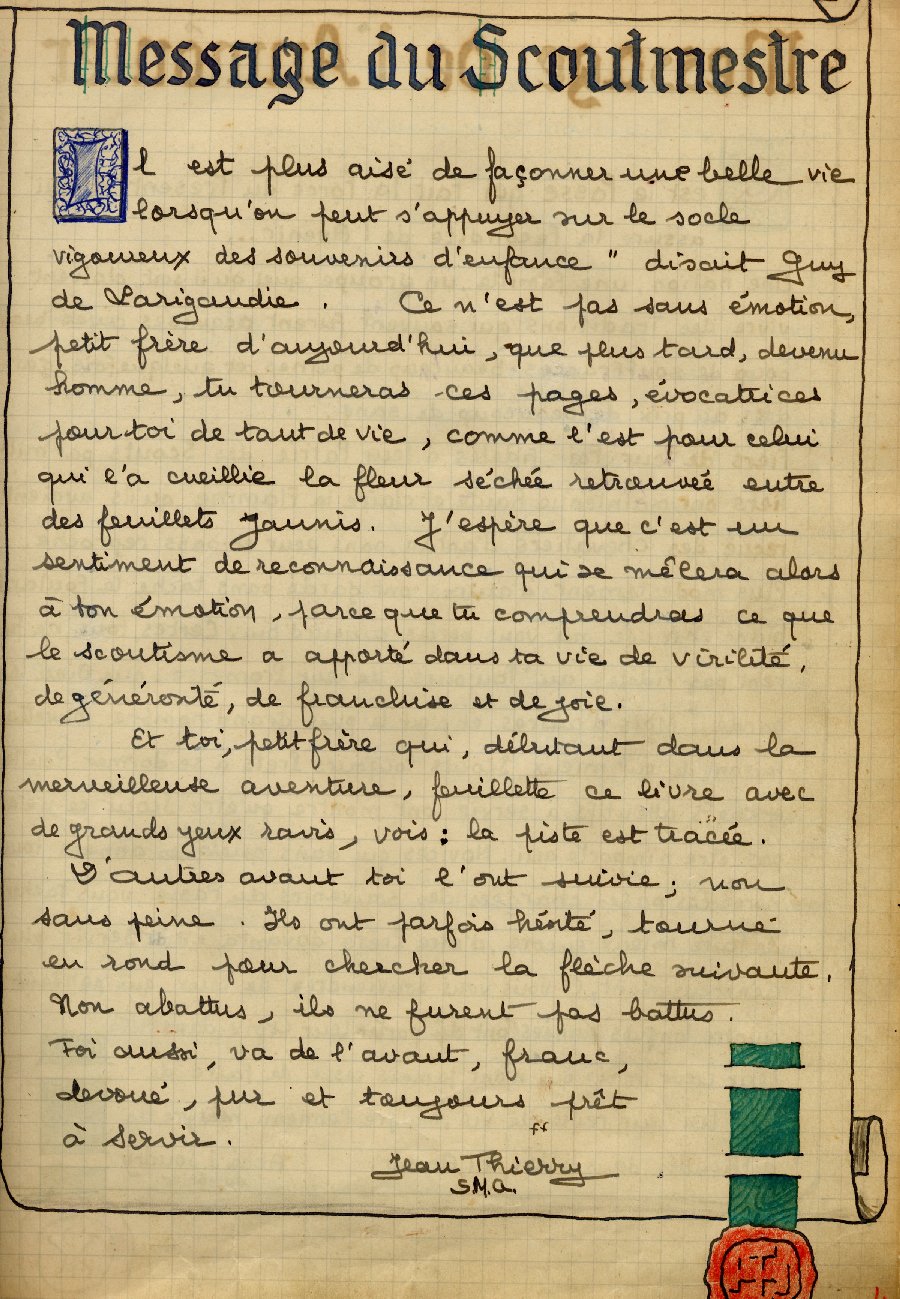 Message du Scoutmestre
Il est plus aisé de façonner une belle vie
lorsqu'on peut s'appuyer sur le socle
vigoureux des souvenirs d'enfance " disait Guy
de Larigaudie . Ce n'est pas sans émotion,
petit frère d'aujourd'hui, que plus tard, devenu
homme, tu tourneras ces pages, évocatrices
pour toi de tant de vie, comme l'est pour celui
qui l'a cueillie la fleur séchée retrouvée entre
des feuillets jaunis. J'espère que c'est un
sentiment de reconnaissance qui se mêlera alors
à ton émotion, parce que tu comprendras ce que
le scoutisme a apporté dans ta vie de virilité,
de générosité, de franchise et de joie.
Et toi, petit frère qui, débutant dans la
merveilleuse aventure, feuillette ce livre avec
de grands yeux ravis, vois : la piste est tracée.
D'autres avant toi l'ont suivie ; non
sans peine . Ils ont parfois hésité, tourné
en rond pour chercher la flèche suivante.
Non abattus, ils ne furent pas battus.
Toi aussi, va de l'avant, franc,
devoué, pur et toujours prêt
à servir.
Jean Thierry
S.M.A.